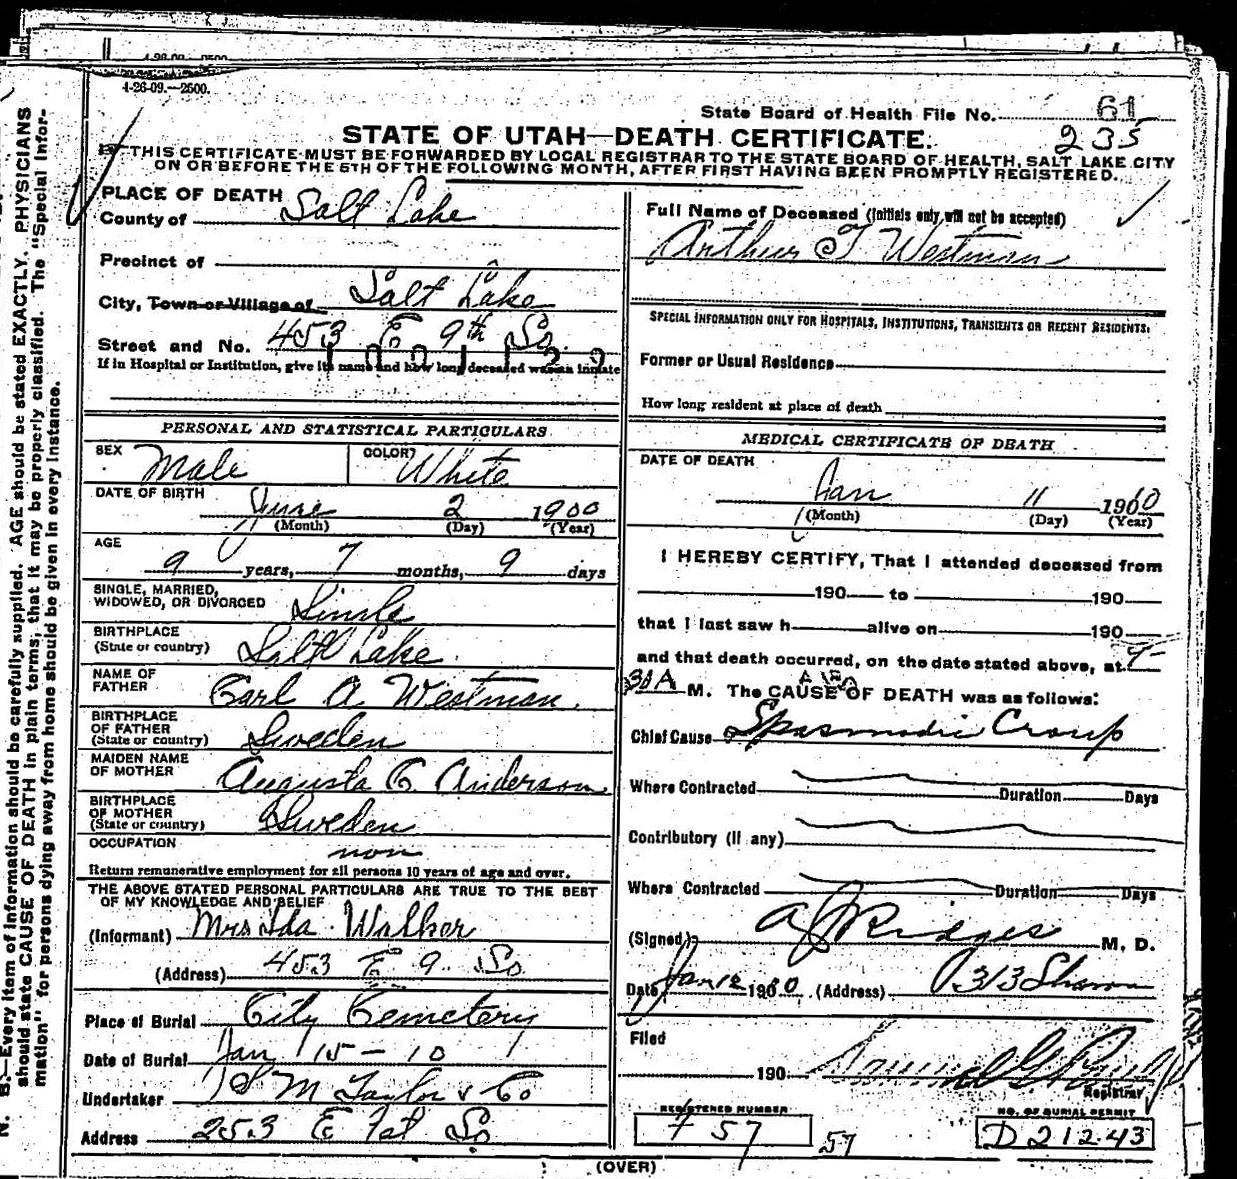 4-26-09.—2500.
State Board of Health File No. 61
235
STATE OF UTAH—DEATH CERTIFICATE.
THIS CERTIFICATE MUST BE FORWARDED BY LOCAL REGISTRAR TO THE STATE BOARD OF HEALTH, SALT LAKE CITY
ON OR BEFORE THE 5TH OF THE FOLLOWING MONTH, AFTER FIRST HAVING BEEN PROMPTLY REGISTERED.
N. B.—Every item of information should be carefully supplied. AGE should be stated EXACTLY. PHYSICIANS
should state CAUSE OF DEATH in plain terms, that it may be properly classified. The "Special Infor-
mation" for persons dying away from home should be given in every instance.
PLACE OF DEATH
County of Salt Lake
Precinct of
City, Town or Village of Salt Lake
Street and No. 453 E 9th So.
If in Hospital or Institution, give its name and how long deceased was an inmate
PERSONAL AND STATISTICAL PARTICULARS
SEX Male COLOR White
DATE OF BIRTH June 2 1900
(Month) (Day) (Year)
AGE
9 years, 7 months, 9 days
SINGLE, MARRIED,
WIDOWED, OR DIVORCED Single
BIRTHPLACE
(State or country) Salt Lake
NAME OF
FATHER Carl A Westman.
BIRTHPLACE
OF FATHER
(State or country) Sweden
MAIDEN NAME
OF MOTHER Augusta C Anderson
BIRTHPLACE
OF MOTHER
(State or country) Sweden
OCCUPATION non
Return remunerative employment for all persons 10 years of age and over.
THE ABOVE STATED PERSONAL PARTICULARS ARE TRUE TO THE BEST
OF MY KNOWLEDGE AND BELIEF
(Informant) Mrs Ida Walker
(Address) 453 E 9 So
Place of Burial City Cemetery
Date of Burial Jan 15-10
Undertaker S M Taylor & Co
Address 253 E 1st So
Full Name of Deceased (Initials only will not be accepted)
Arthur T Westman
SPECIAL INFORMATION ONLY FOR HOSPITALS, INSTITUTIONS, TRANSIENTS OR RECENT RESIDENTS.
Former or Usual Residence
How long resident at place of death
MEDICAL CERTIFICATE OF DEATH
DATE OF DEATH
Jan 11 1910
(Month) (Day) (Year)
I HEREBY CERTIFY, That I attended deceased from
190 to 190
that I last saw h alive on 190
and that death occurred, on the date stated above, at 4-
30 A M. The CAUSE OF DEATH was as follows:
Chief Cause Spasmodic Croup
Where Contracted Duration Days
Contributory (If any)
Where Contracted Duration Days
(Signed) A J Ridges M. D.
Date Jan 12 1910 (Address) 313 Sharon
Filed
190
Registrar
REGISTERED NUMBER
57
57
NO. OF BURIAL PERMIT
D 21243
(OVER)